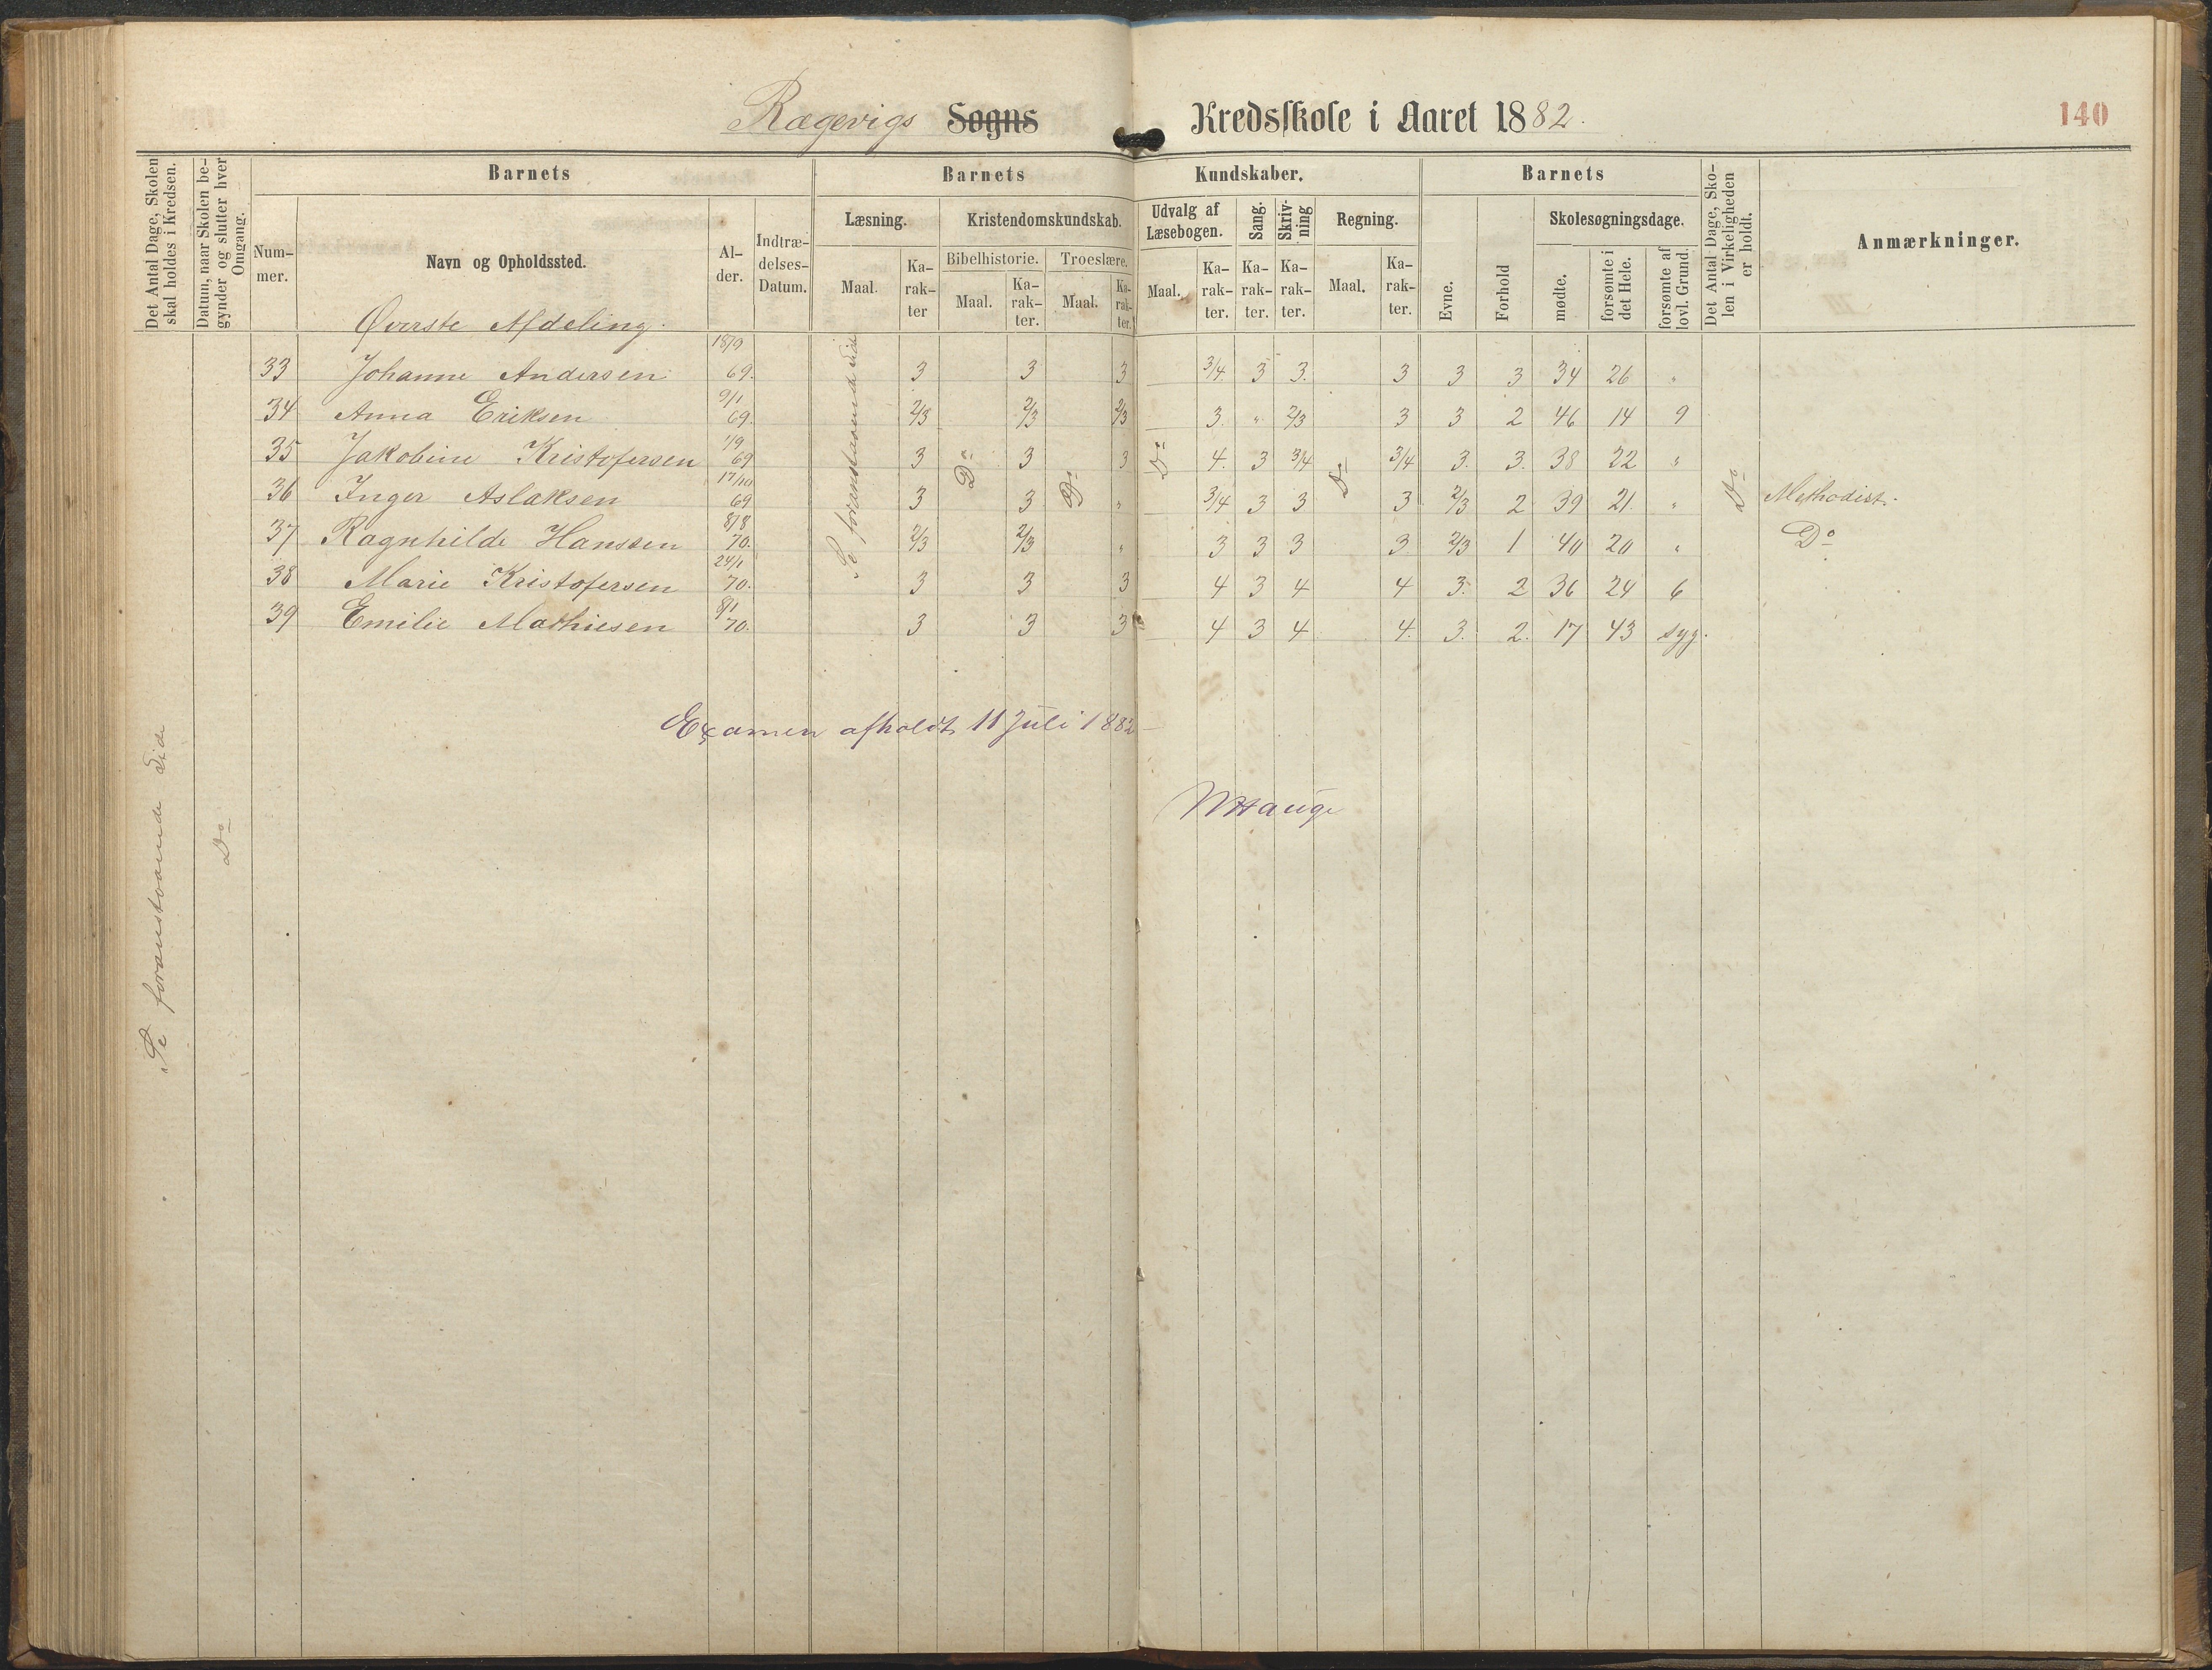 Rægevigs Sogns Kredsskole i Aaret 1882. 140
Det Antal Dage, Skolen skal holdes i Kredsen.
Datum, naar Skolen begynder og slutter hver Omgang.
Barnets Barnets Kundskaber. Barnets
Det Antal Dage, Skolen i Virkeligheden er holdt.
Anmærkninger.
Nummer. Navn og Opholdssted. Alder. Indtrædelses-Datum.
Læsning. Kristendomskundskab. Udvalg af Læsebogen. Sang. Skrivning Regning. Evne. Forhold Skolesøgningsdage.
Bibelhistorie. Troeslære.
Maal. Karakter Maal. Karakter. Maal. Karakter. Maal. Karakter. Karakter. Karakter. Maal. Karakter. mødte. forsømte i det Hele. forsømte af lovl. Grund.
Øverste Afdeling.
33 Johanne Andersen 18/9 69. 3 3 3 3/4. 3 3. 3 3 3 34 26 "
34 Anna Eriksen 9/1 69. 2/3 2/3 2/3 3. " 2/3 3 3 2 46 14 9
35 Jakobine Kristofersen 1/9 69 3 3 3 4. 3 3/4 3/4 3. 3. 38 22 "
36 Inger Aslaksen 17/10 69 3 3 " 3/4 3 3 3 2/3 2 39 21. " Methodist.
37 Ragnhilde Hansen 8/8 70. 2/3 2/3 " 3 3 3 3 2/3 1 40 20 " Do
38 Marie Kristofersen 24/1 70. 3 3 3 4 3 4 4 3. 2 36 24 6
39 Emilie Mathiesen 8/1 70. 3 3 3 4 3 4 4. 3. 2. 17 43 syg.
Se foranstaaende Side
Do
Do
Do
Do
Do
Examen afholdt 11 Juli 1882
Hauge
Se foranstaaende Side
Do